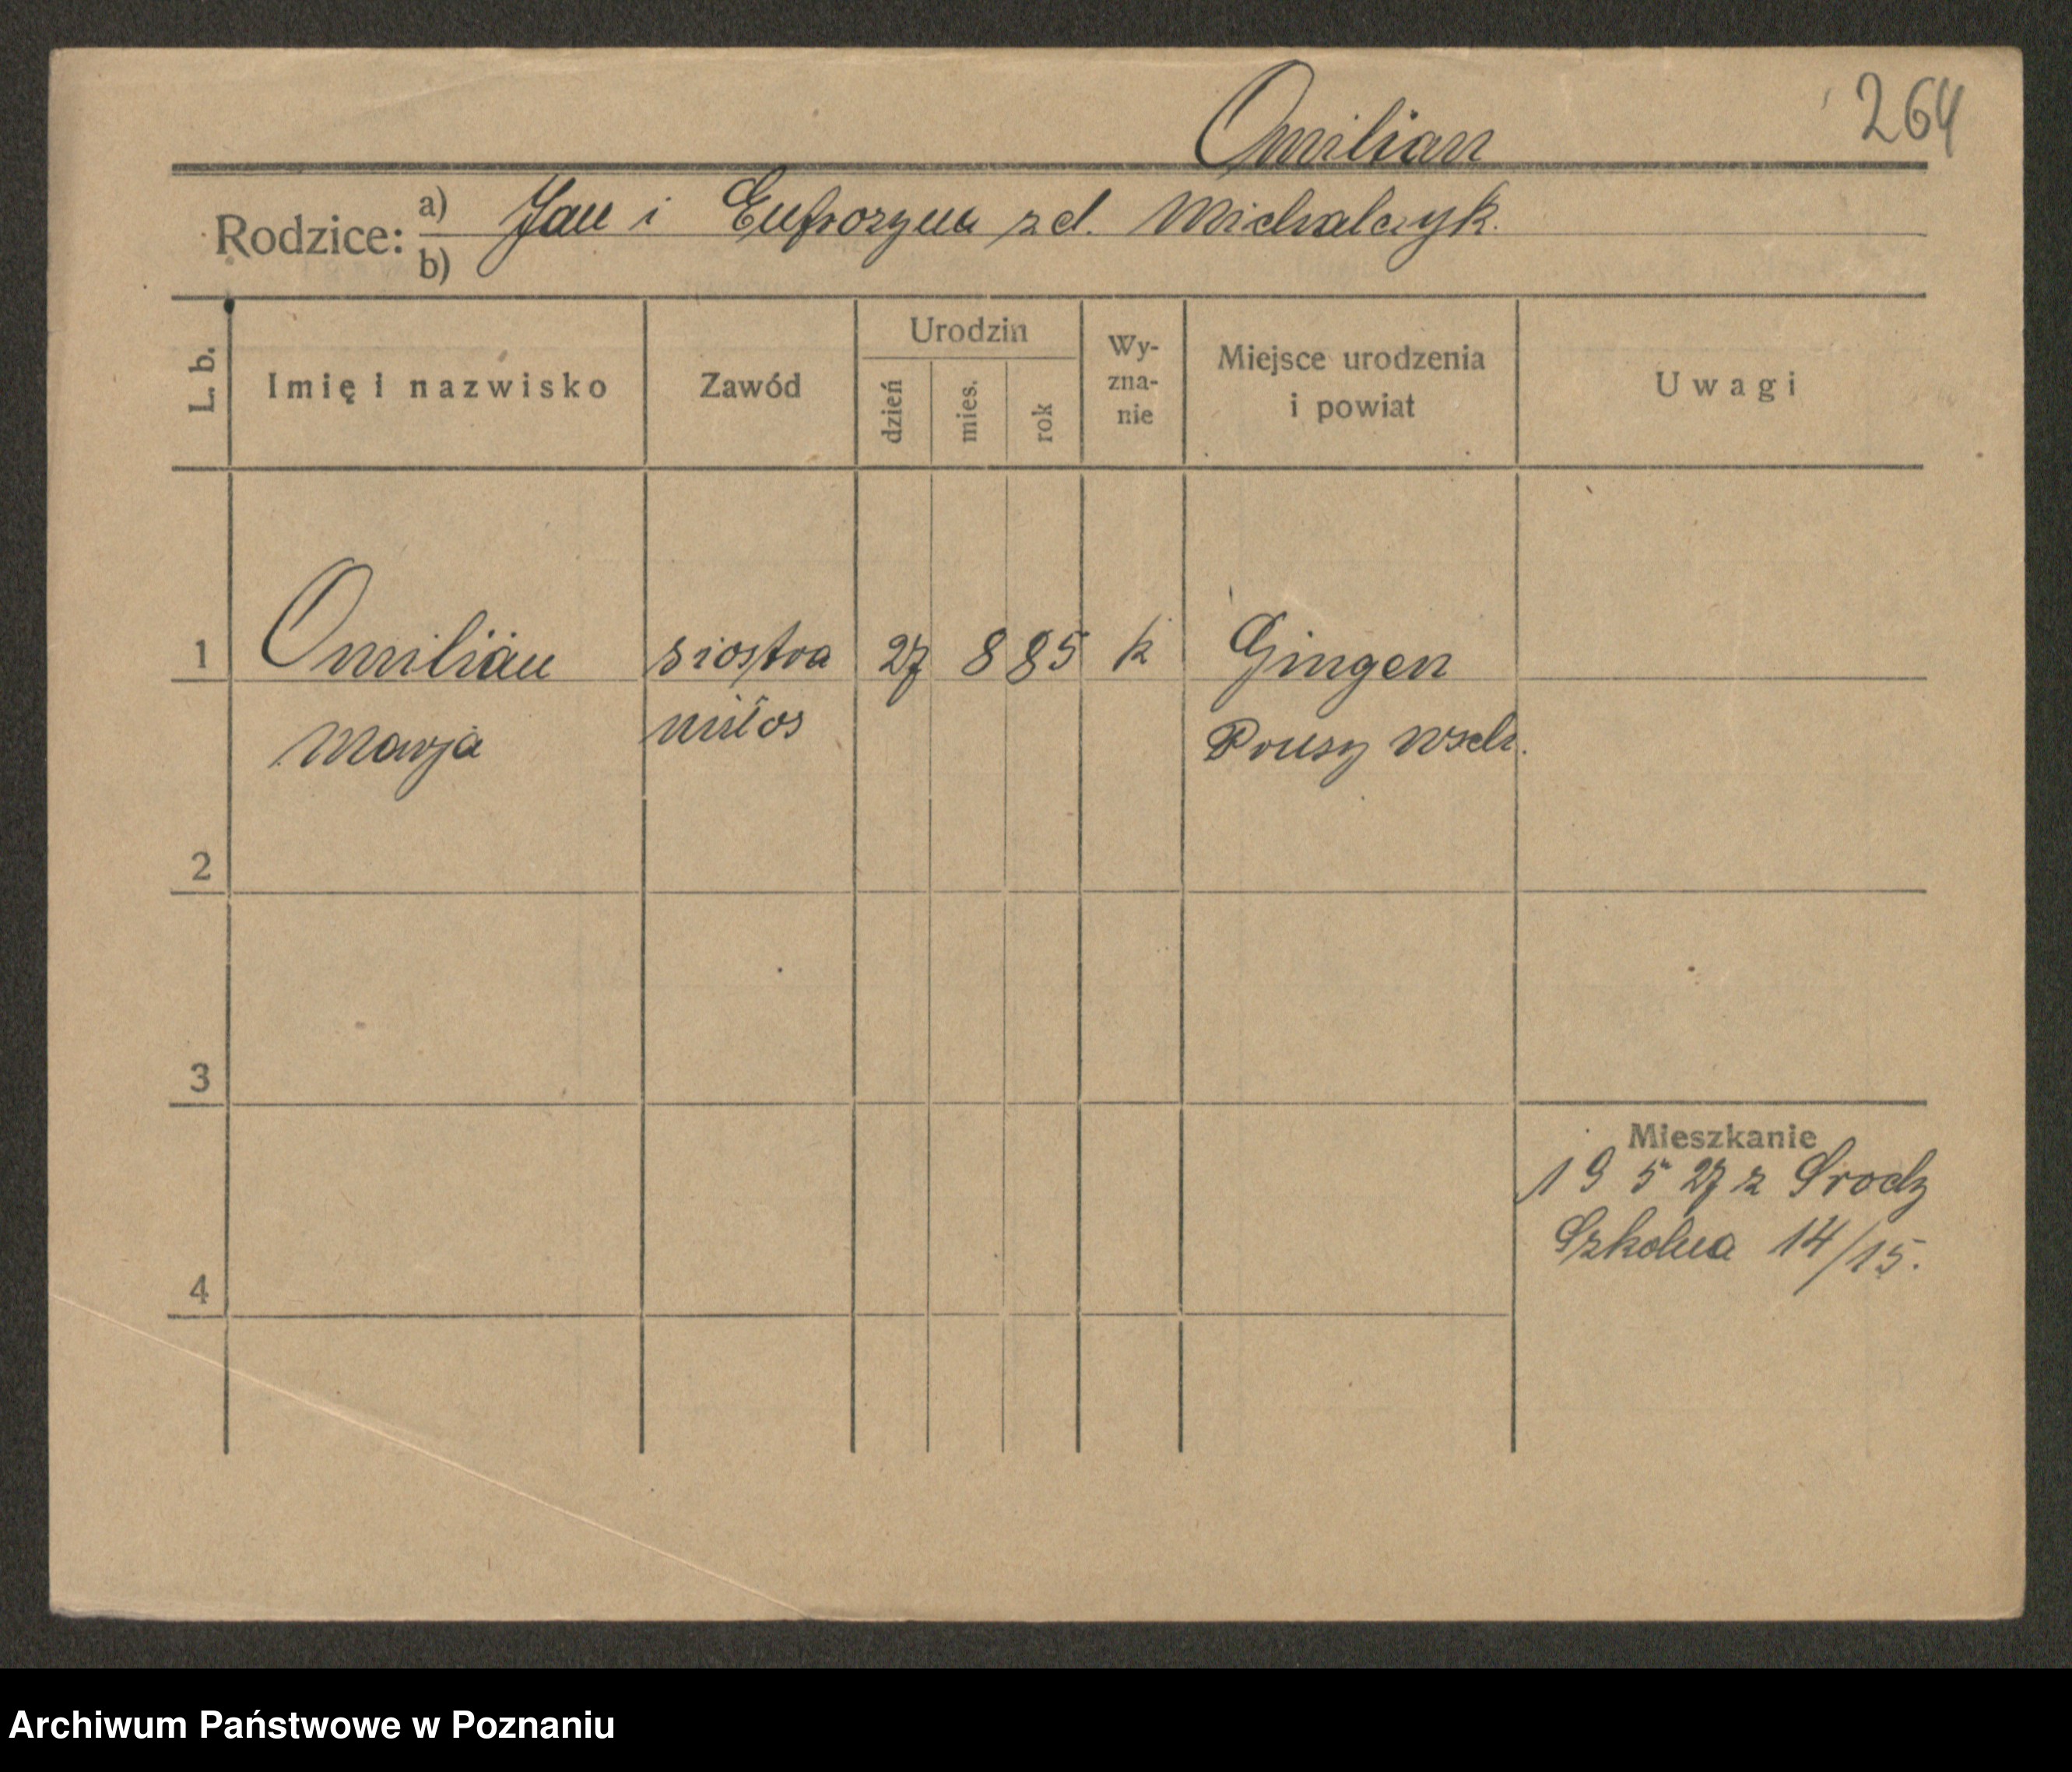 264
Omilian
Rodzice: a) Jan i Eufrozyna zd. Michalczyk.
b)
L. b.
Imię i nazwisko
Zawód
Urodzin
dzień
mies.
rok
Wy-
zna-
nie
Miejsce urodzenia
i powiat
Uwagi
1 Omilian siostra 27 8 85 k Gingen
Marja miłos Prusy wsch.
2
3
4
Mieszkanie
19 5 27 z Środy
Szkolna 14/15.
Archiwum Państwowe w Poznaniu